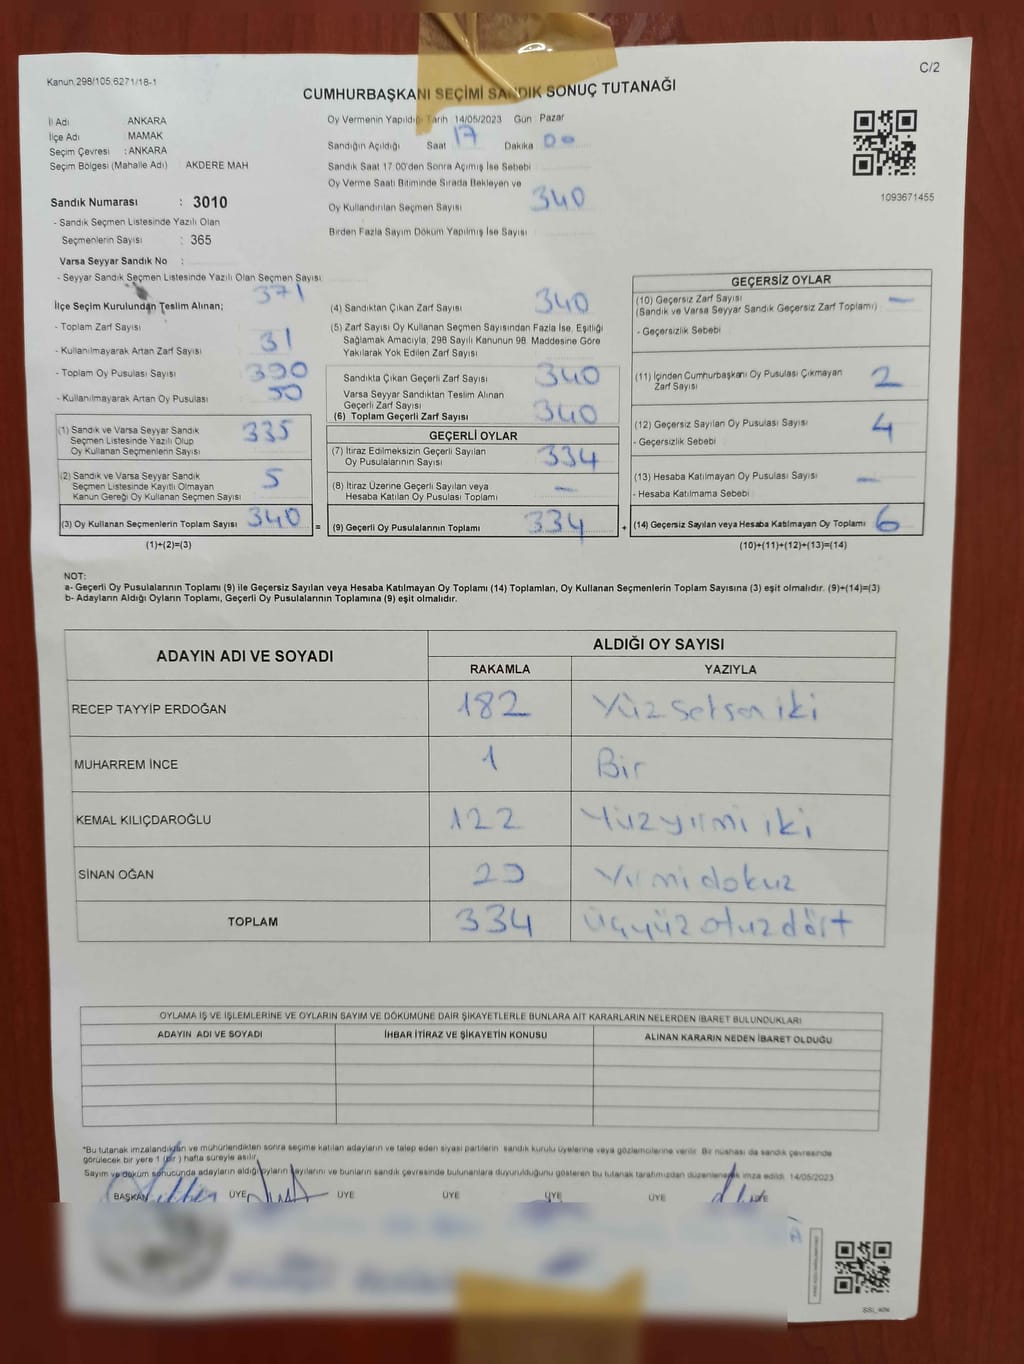 Kanun 298/105 6271/18-1
C/2
CUMHURBAŞKANI SEÇİMİ SANDIK SONUÇ TUTANAĞI
İl Adı ANKARA
İlçe Adı MAMAK
Seçim Çevresi : ANKARA
Seçim Bölgesi (Mahalle Adı) AKDERE MAH
Sandık Numarası : 3010
- Sandık Seçmen Listesinde Yazılı Olan
Seçmenlerin Sayısı : 365
Varsa Seyyar Sandık No :
- Seyyar Sandık Seçmen Listesinde Yazılı Olan Seçmen Sayısı:
Oy Vermenin Yapıldığı Tarih 14/05/2023 Gün Pazar
Sandığın Açıldığı Saat 17 Dakika 00
Sandık Saat 17 00'den Sonra Açımış İse Sebebi
Oy Verme Saati Bitiminde Sırada Bekleyen ve
Oy Kullandırılan Seçmen Sayısı 340
Birden Fazla Sayım Döküm Yapılmış İse Sayısı
1093671455
İlçe Seçim Kurulundan Teslim Alınan;
- Toplam Zarf Sayısı 371
- Kullanılmayarak Artan Zarf Sayısı 31
- Toplam Oy Pusulası Sayısı 390
- Kullanılmayarak Artan Oy Pusulası 50
(1) Sandık ve Varsa Seyyar Sandık
Seçmen Listesinde Yazılı Olup
Oy Kullanan Seçmenlerin Sayısı 335
(2) Sandık ve Varsa Seyyar Sandık
Seçmen Listesinde Kayıtlı Olmayan
Kanun Gereği Oy Kullanan Seçmen Sayısı 5
(3) Oy Kullanan Seçmenlerin Toplam Sayısı 340 =
(1)+(2)=(3)
(4) Sandıktan Çıkan Zarf Sayısı 340
(5) Zarf Sayısı Oy Kullanan Seçmen Sayısından Fazla İse, Eşitliği
Sağlamak Amacıyla, 298 Sayılı Kanunun 98. Maddesine Göre
Yakılarak Yok Edilen Zarf Sayısı
Sandıkta Çıkan Geçerli Zarf Sayısı 340
Varsa Seyyar Sandıktan Teslim Alınan
Geçerli Zarf Sayısı
(6) Toplam Geçerli Zarf Sayısı 340
GEÇERLİ OYLAR
(7) İtiraz Edilmeksizin Geçerli Sayılan
Oy Pusulalarının Sayısı 334
(8) İtiraz Üzerine Geçerli Sayılan veya
Hesaba Katılan Oy Pusulası Toplamı —
(9) Geçerli Oy Pusulalarının Toplamı 334 +
GEÇERSİZ OYLAR
(10) Geçersiz Zarf Sayısı —
(Sandık ve Varsa Seyyar Sandık Geçersiz Zarf Toplamı)
- Geçersizlik Sebebi
(11) İçinden Cumhurbaşkanı Oy Pusulası Çıkmayan
Zarf Sayısı 2
(12) Geçersiz Sayılan Oy Pusulası Sayısı 4
- Geçersizlik Sebebi
(13) Hesaba Katılmayan Oy Pusulası Sayısı —
- Hesaba Katılmama Sebebi
(14) Geçersiz Sayılan veya Hesaba Katılmayan Oy Toplamı 6
(10)+(11)+(12)+(13)=(14)
NOT:
a- Geçerli Oy Pusulalarının Toplamı (9) ile Geçersiz Sayılan veya Hesaba Katılmayan Oy Toplamı (14) Toplamları, Oy Kullanan Seçmenlerin Toplam Sayısına (3) eşit olmalıdır. (9)+(14)=(3)
b- Adayların Aldığı Oyların Toplamı, Geçerli Oy Pusulalarının Toplamına (9) eşit olmalıdır.
ADAYIN ADI VE SOYADI
ALDIĞI OY SAYISI
RAKAMLA YAZIYLA
RECEP TAYYİP ERDOĞAN 182 Yüz seksen iki
MUHARREM İNCE 1 Bir
KEMAL KILIÇDAROĞLU 122 Yüz yirmi iki
SİNAN OĞAN 29 Yirmi dokuz
TOPLAM 334 üçyüz otuz dört
OYLAMA İŞ VE İŞLEMLERİNE VE OYLARIN SAYIM VE DÖKÜMÜNE DAİR ŞİKAYETLERLE BUNLARA AİT KARARLARIN NELERDEN İBARET BULUNDUKLARI
ADAYIN ADI VE SOYADI İHBAR İTİRAZ VE ŞİKAYETİN KONUSU ALINAN KARARIN NEDEN İBARET OLDUĞU
*Bu tutanak imzalandıktan ve mühürlendikten sonra seçime katılan adayların ve talep eden siyasi partilerin sandık kurulu üyelerine veya gözlemcilerine verilir. Bir nüshası da sandık çevresinde
görülecek bir yere 1 (bir) hafta süreyle asılır.
Sayım ve döküm sonucunda adayların aldığı oyların sayılarını ve bunların sandık çevresinde bulunanlara duyurulduğunu gösteren bu tutanak tarafımızdan düzenlenerek imza edildi. 14/05/2023
BAŞKAN ÜYE ÜYE ÜYE ÜYE ÜYE ÜYE